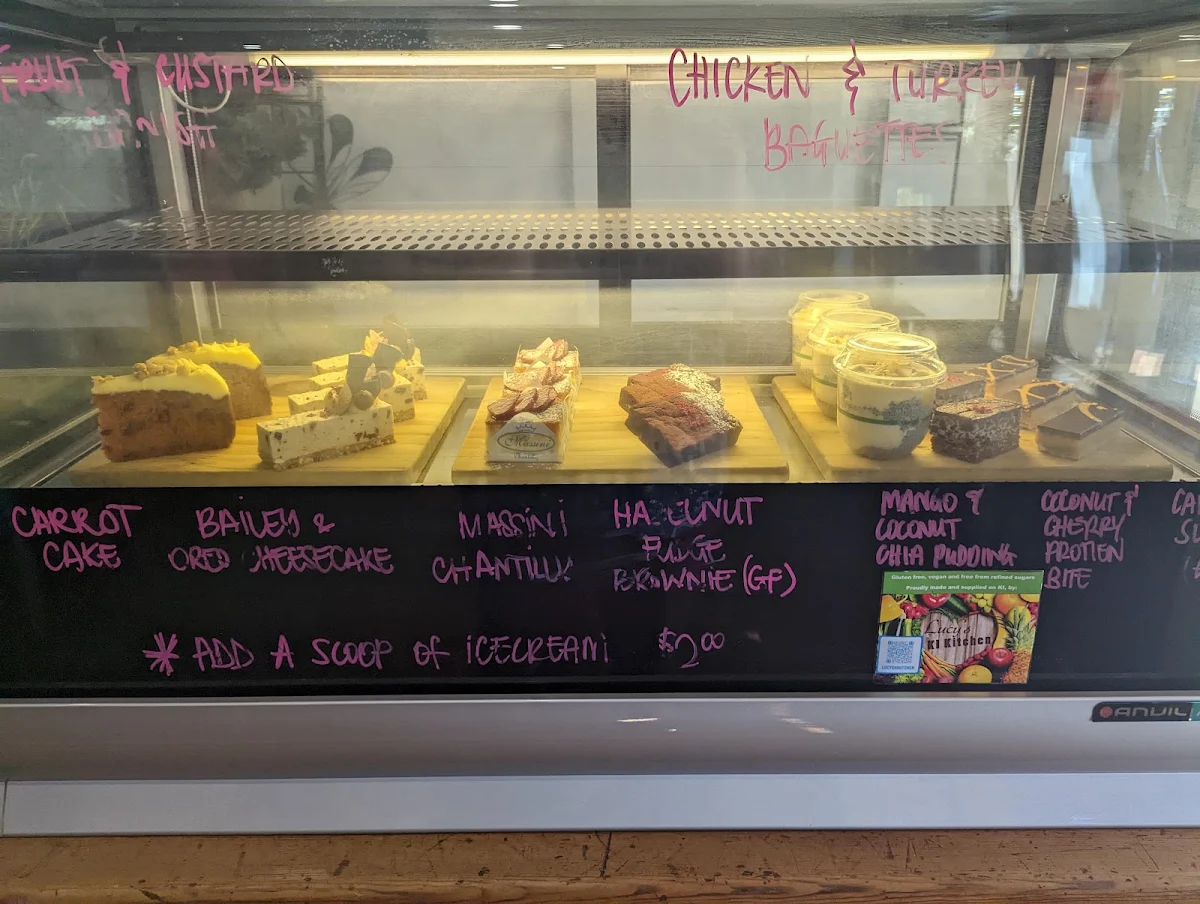 FRUIT & CUSTARD
DANISH
CHICKEN & TURKEY
BAGUETTES
CARROT
CAKE
BAILEY &
OREO CHEESECAKE
MASSINI
CHANTILLY
HAZELNUT
FUDGE
BROWNIE (GF)
MANGO &
COCONUT
CHIA PUDDING
COCONUT &
CHERRY
PROTIEN
BITE
* ADD A SCOOP OF ICECREAM $2.00
Massini
Gluten free, vegan and free from refined sugars
Proudly made and supplied on KI, by:
Lucy's
KI Kitchen
ANVIL